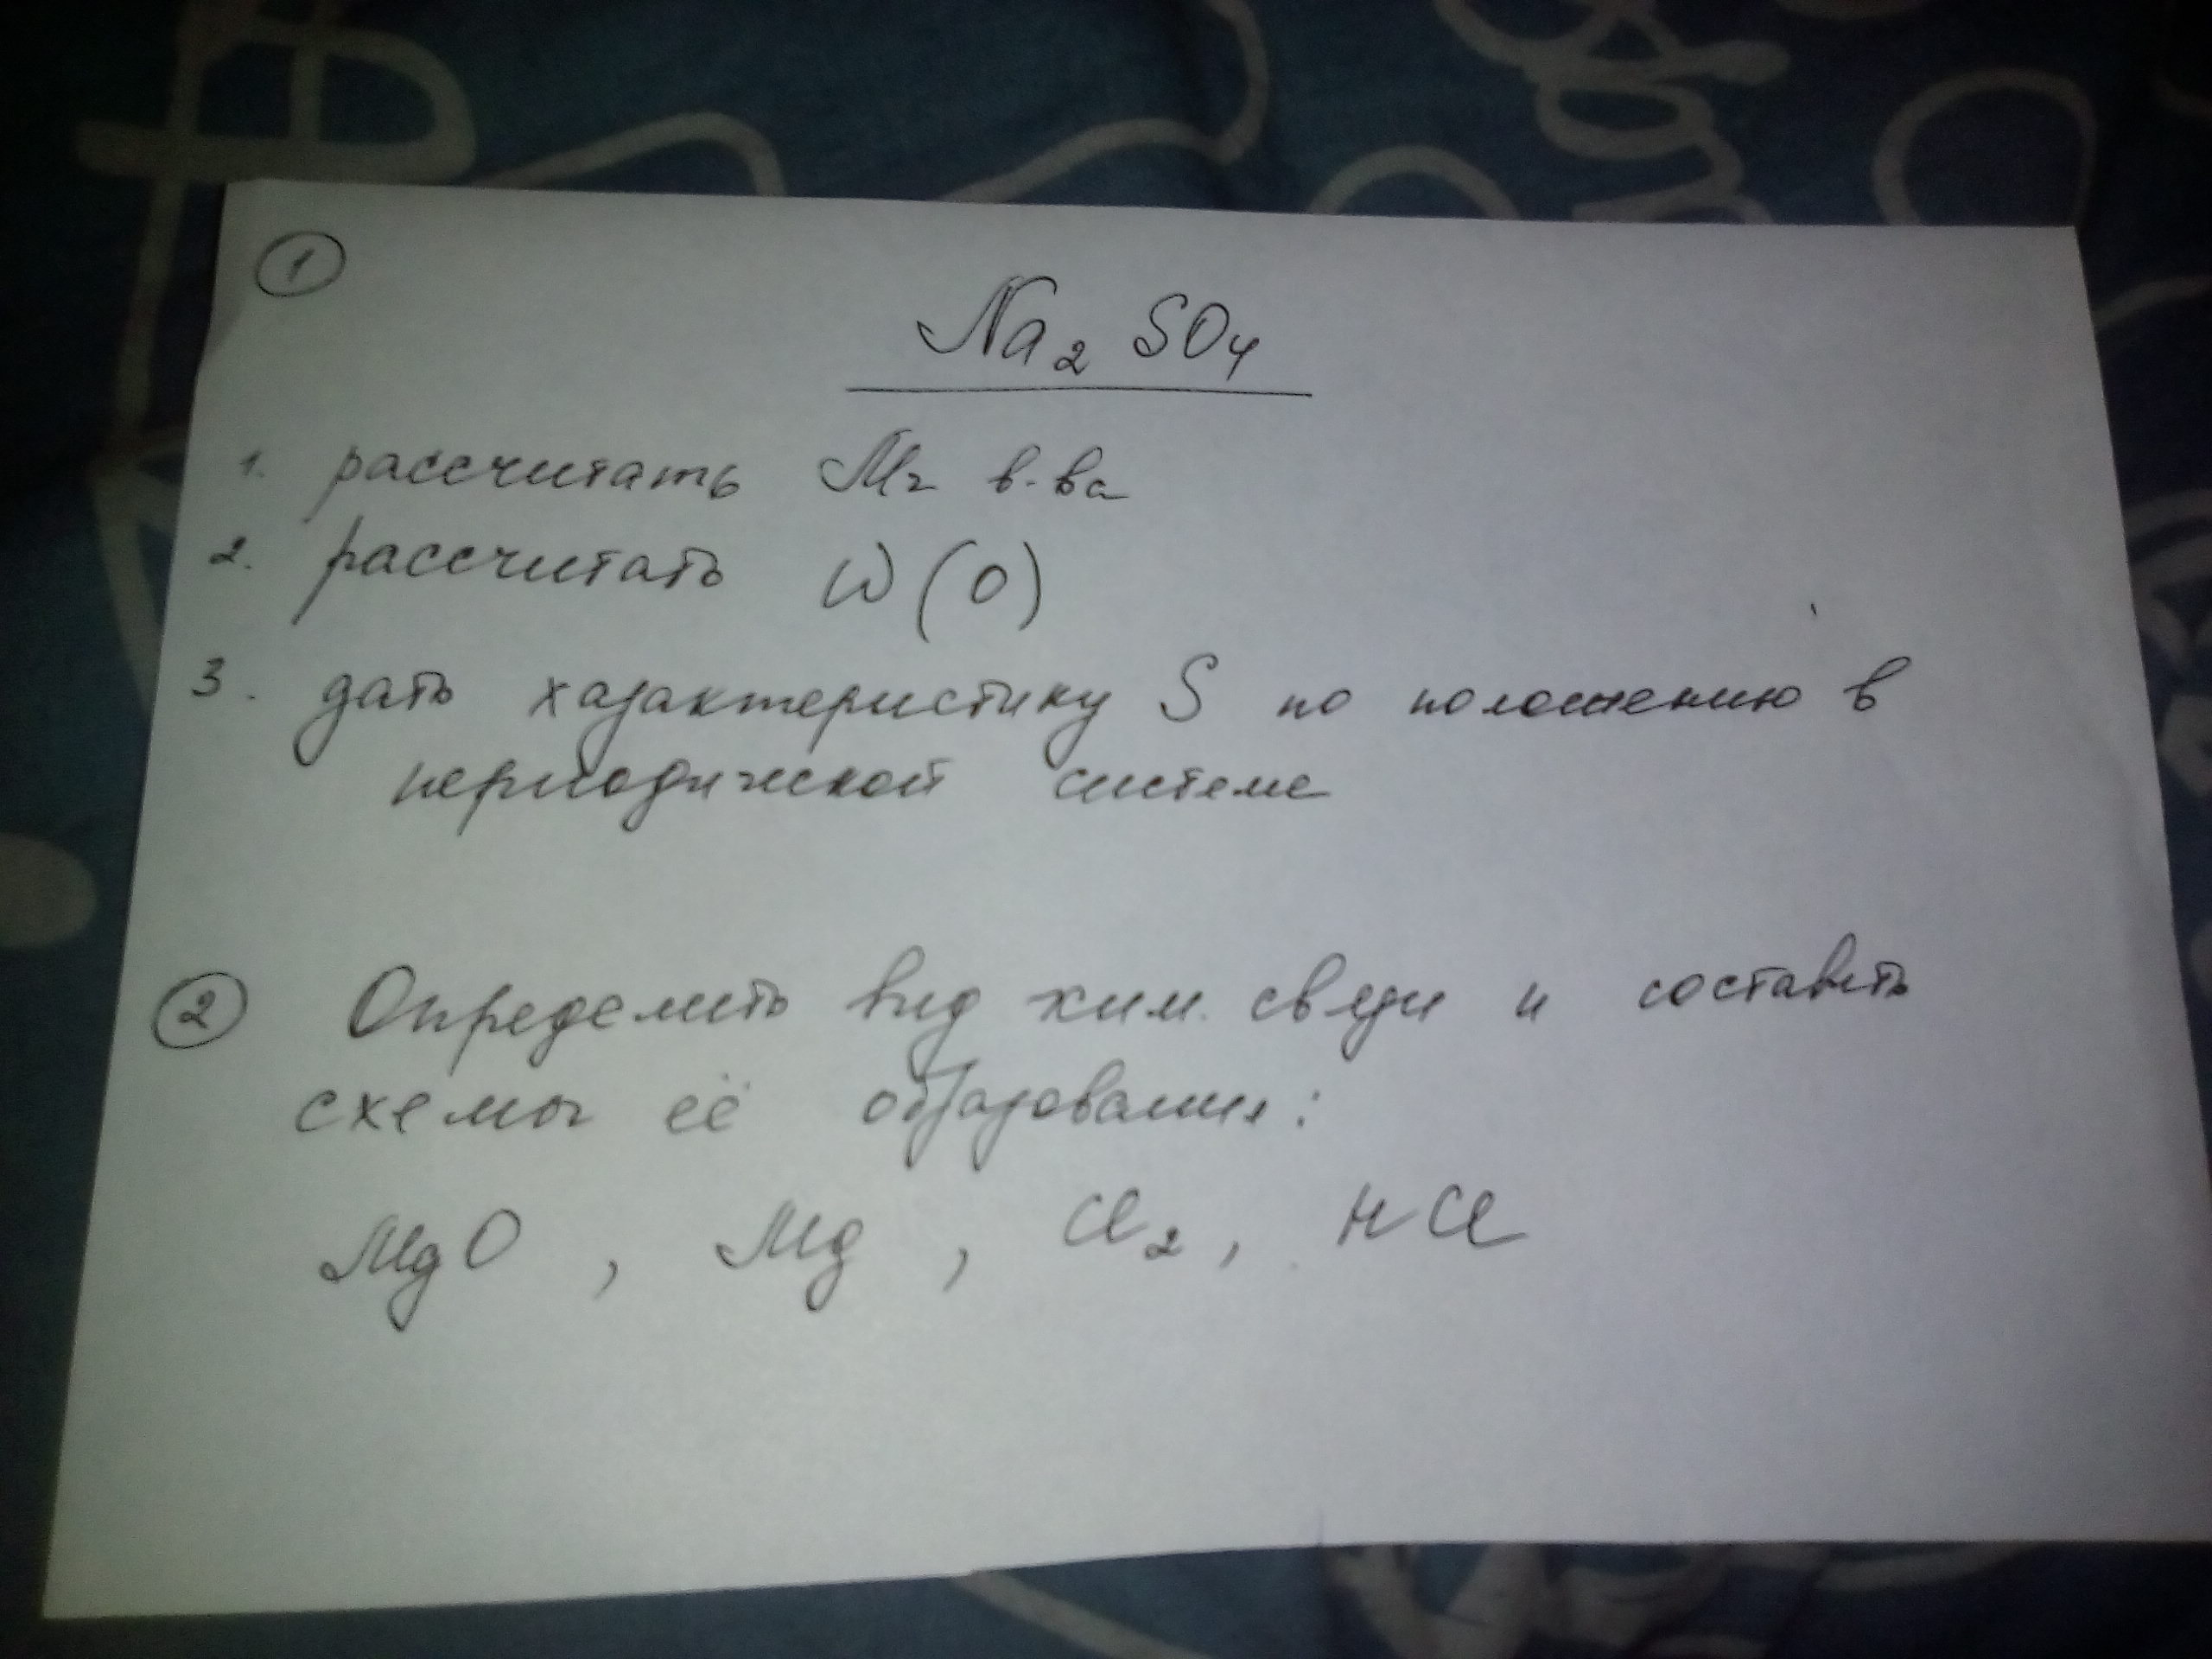 1
Na₂SO₄
1. рассчитать Mr в-ва
2. рассчитать W(O)
3. дать характеристику S по положению в
периодической системе
2 Определить вид хим. связи и составить
схемы её образования:
MgO, Mg, Cl₂, HCl